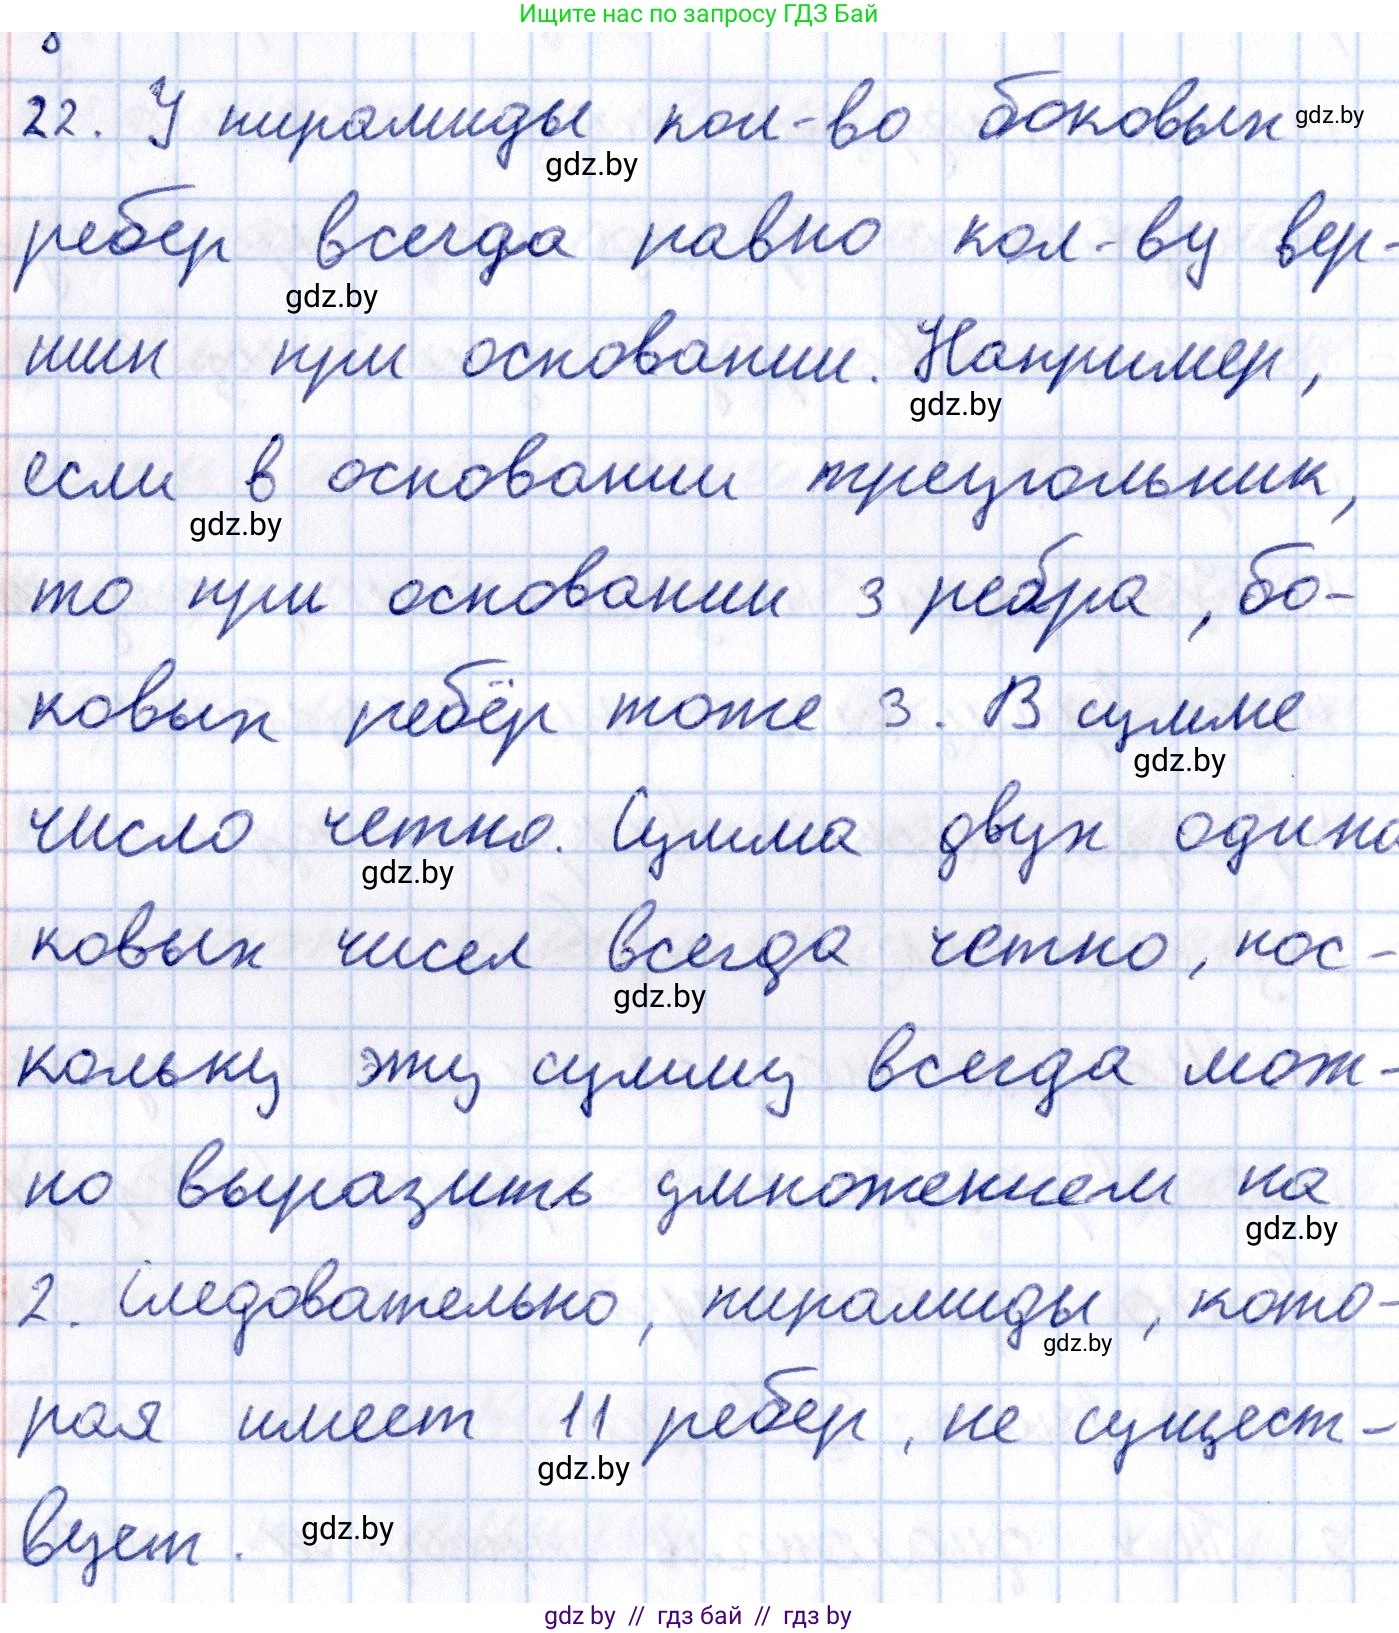 Ищите нас по запросу ГДЗ Бай
22. У пирамиды кол-во боковых gdz.by
gdz.by
ребер всегда равно кол-ву вер-
gdz.by
шин при основании. Например,
gdz.by
если в основании треугольник,
gdz.by
то при основании 3 ребра, бо-
ковых ребёр тоже 3. В сумме
gdz.by
число четно. Сумма двух одина
gdz.by
ковых чисел всегда четно, пос-
gdz.by
кольку эту сумму всегда мож-
но выразить умножением на
gdz.by
2. Следовательно, пирамиды, кото-
gdz.by
рая имеет 11 ребер, не сущест-
gdz.by
вует.
gdz.by
gdz by // гдз бай // гдз by